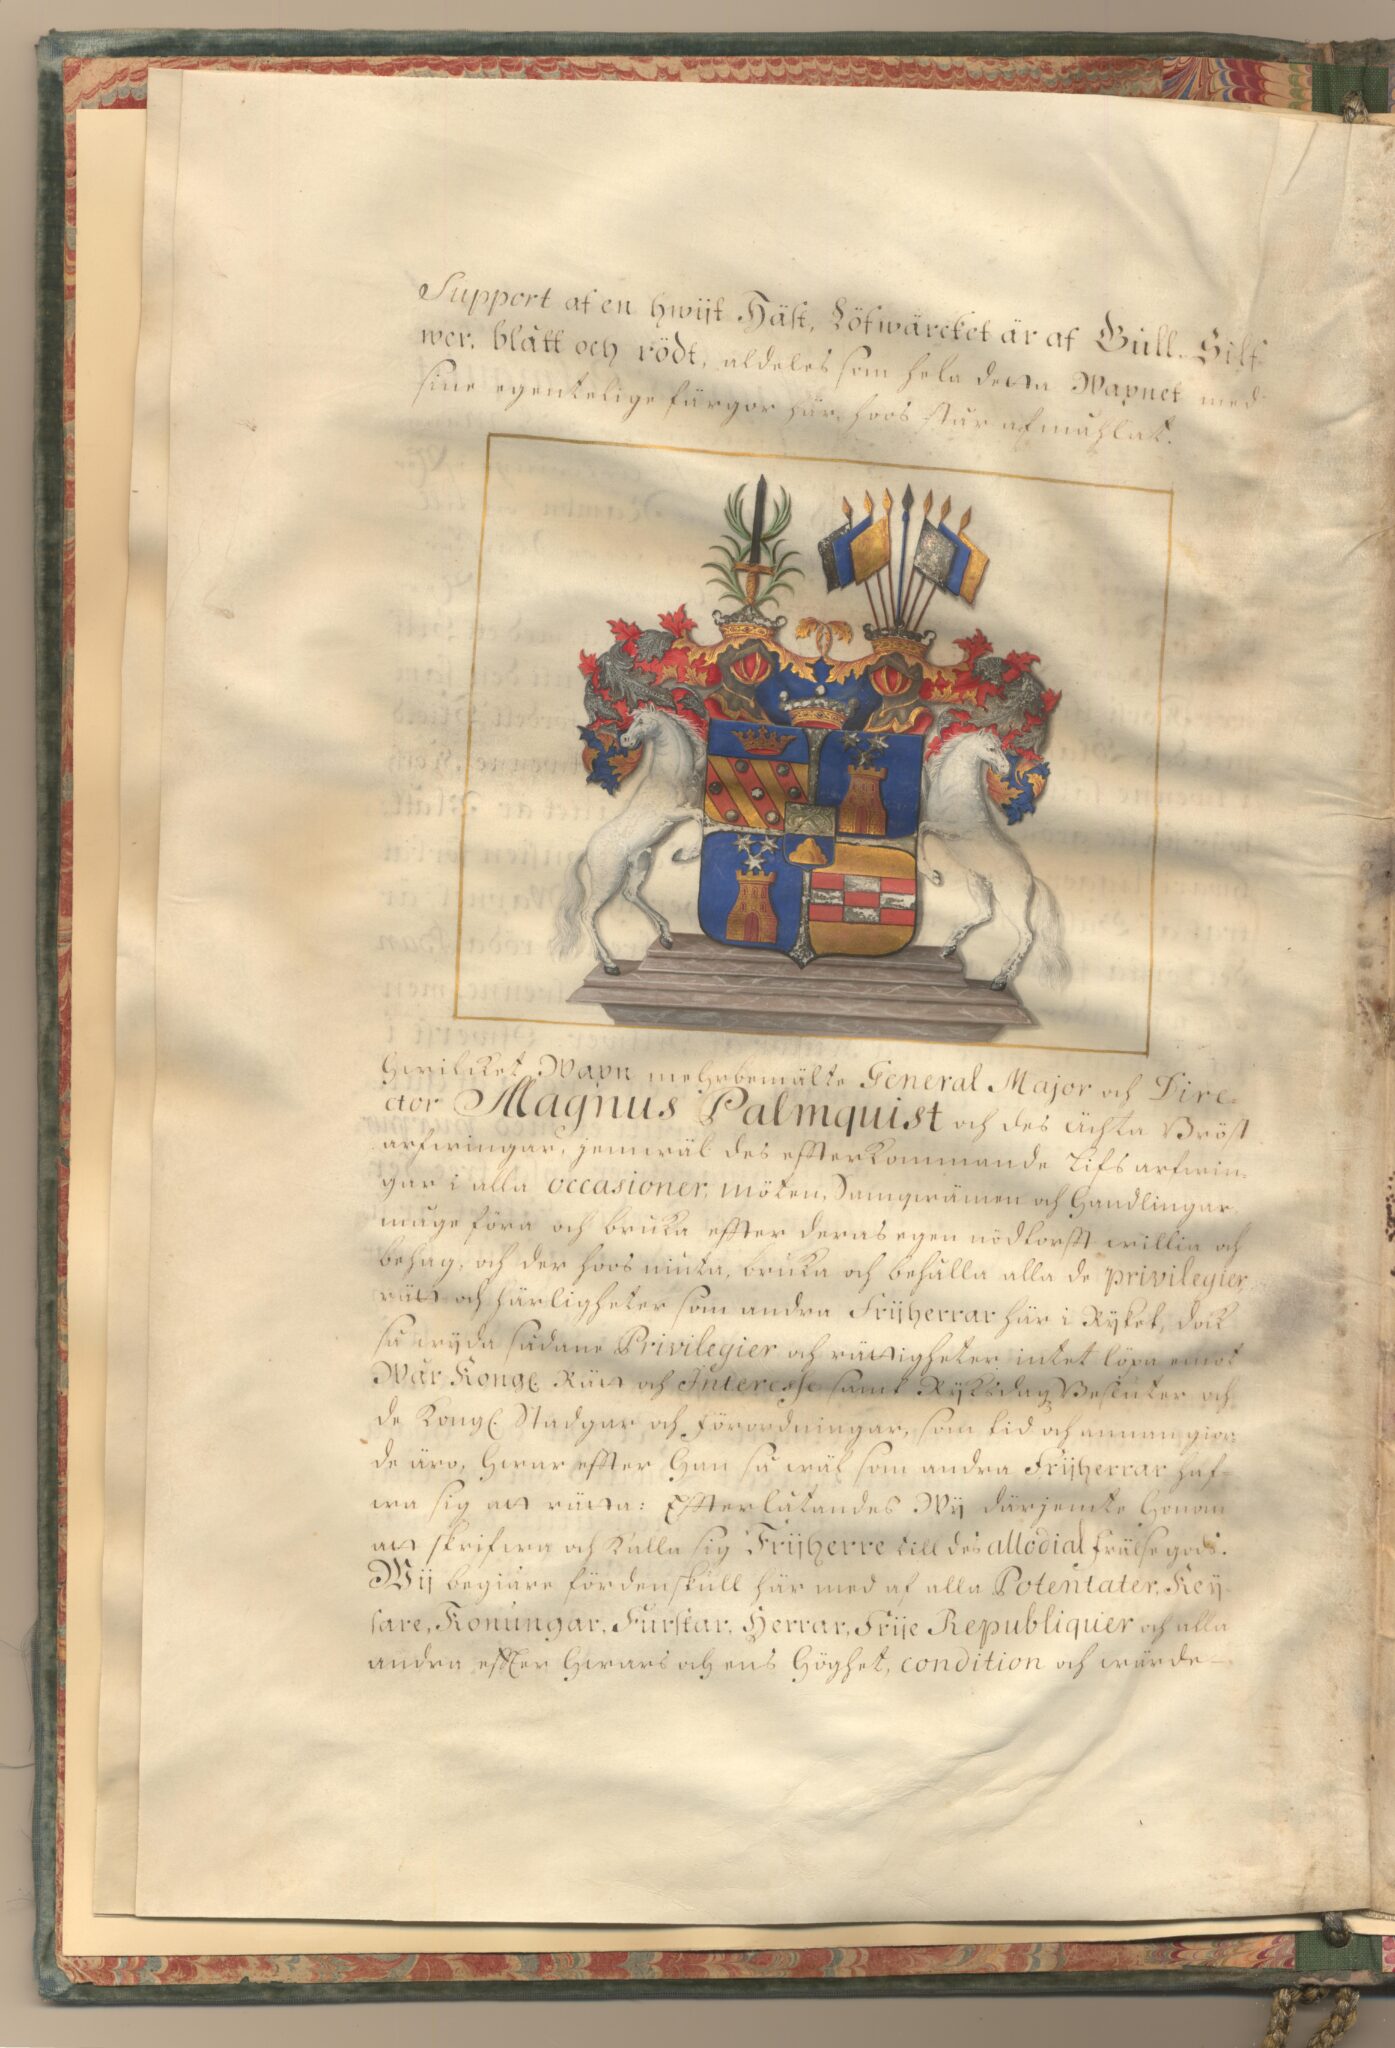 Support af en hwijt Häst, Löfwärcket är af Gull, Silf-
wer, blått och rödt, aldeles som hela detta Wapnet med
sine egentelige färgor här hoos står afmåhlat.
Hwilcket Wapn mehrbemälte General Major och Dire-
ctor Magnus Palmquist och des ächta Bröst
arfwingar, jemwäl des effterkommande Lifs arfwin-
gar i alla occasioner, möten, Samqwämen och Handlingar
måge föra och bruka effter deras egen nödtorfft willia och
behag, och der hoos niuta, bruka och behålla alla de privilegier,
rätt och härligheter som andra Frijherrar här i Ryket, dock
så wyda sådane Privilegier och rättigheter intet löpa emot
Wår Kongl. Rätt och Interesse samt Ryksdag Besluter och
de Kongl. Stadgar och Förordningar, som tid och annan gior-
de äro, Hwar effter Han så wäl som andra Frijherrar haf-
wa sig att rätta: Effterlåtandes Wij därjemte Honom
att skrifwa och kalla sig Frijherre till des allodial frälse gods.
Wij begiäre fördenskull här med af alla Potentater, Key-
sare, Konungar, Furstar, Herrar, Frije Republiquier och alla
andra effter Hwars och ens Höghet, condition och wärde